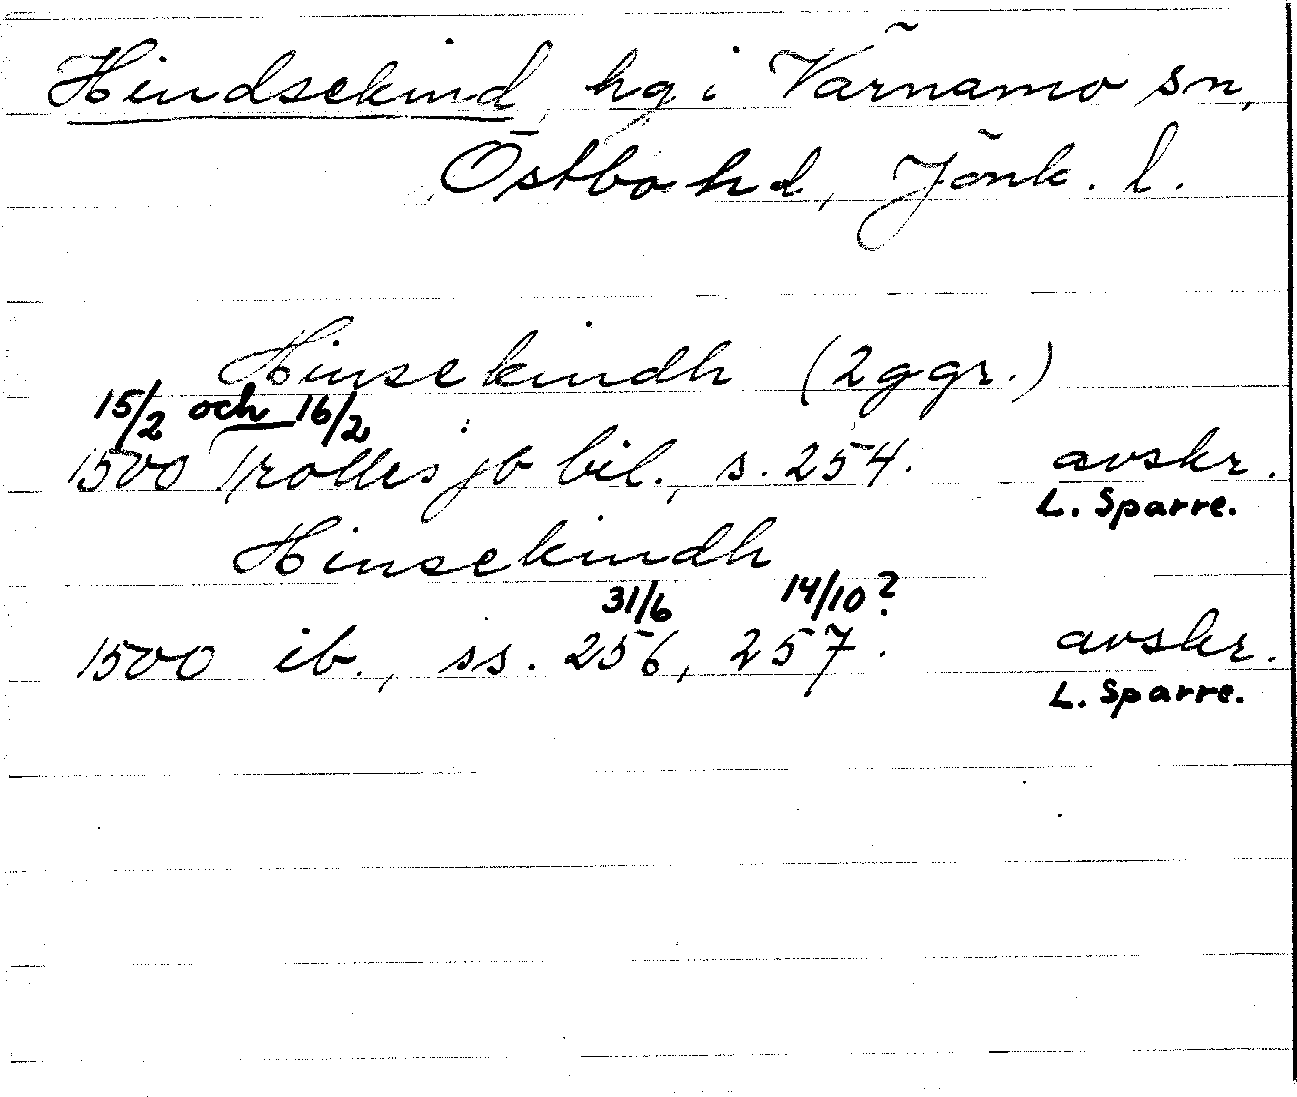 Hindsekind, hg i Värnamo sn,
Östbo hd, Jönk. l.
Hinsekindh (2 ggr.)
15/2 och 16/2
1500 Trolles jb bil., s. 254. avskr.
L. Sparre.
Hinsekindh
31/6 14/10?
1500 ib., ss. 256, 257. avskr.
L. Sparre.